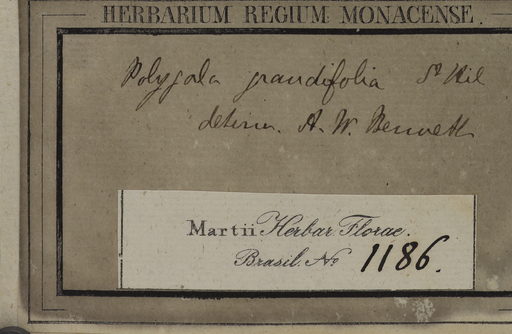 HERBARIUM REGIUM MONACENSE.
Polygala grandifolia St Hil
determ. A. W. Bennett
Martii Herbar Florae.
Brasil. No 1186.